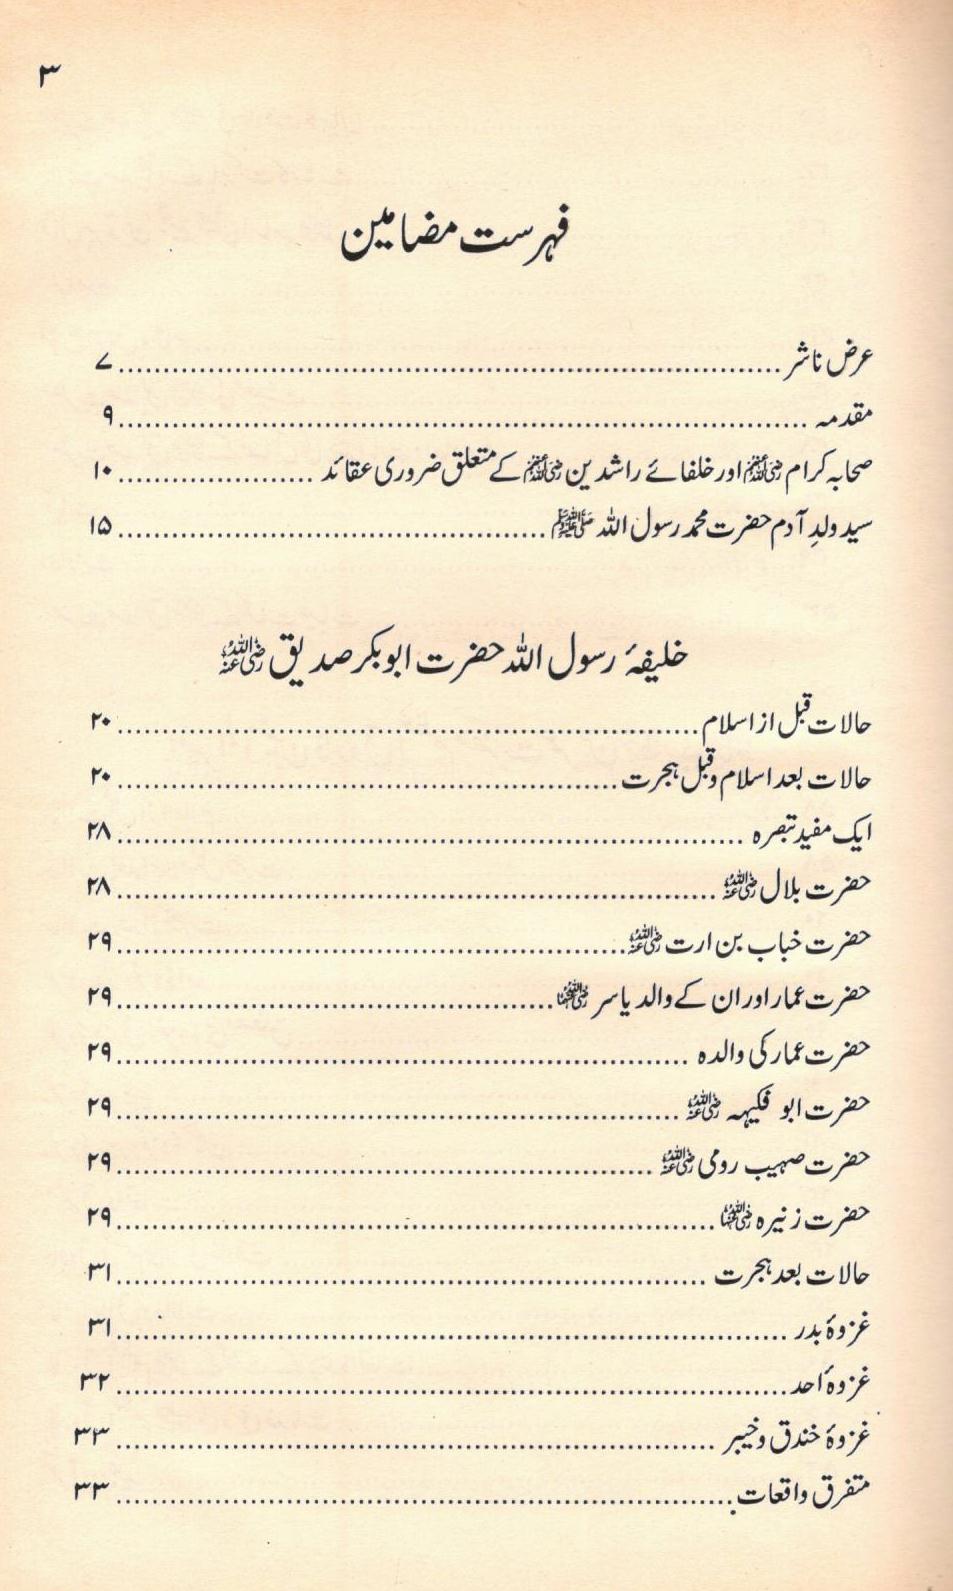 ۳
فہرست مضامین
عرض ناشر ........ ۷
مقدمہ ........ ۹
صحابہ کرام رضی اللہ عنہم اور خلفائے راشدین رضی اللہ عنہم کے متعلق ضروری عقائد ........ ۱۰
سید ولدِ آدم حضرت محمد رسول اللہ ﷺ ........ ۱۵
خلیفۂ رسول اللہ حضرت ابوبکر صدیق رضی اللہ عنہ
حالات قبل از اسلام ........ ۲۰
حالات بعد اسلام وقبل ہجرت ........ ۲۰
ایک مفید تبصرہ ........ ۲۸
حضرت بلال رضی اللہ عنہ ........ ۲۸
حضرت خباب بن ارت رضی اللہ عنہ ........ ۲۹
حضرت عمار اور ان کے والد یاسر رضی اللہ عنہما ........ ۲۹
حضرت عمار کی والدہ ........ ۲۹
حضرت ابو فکیہہ رضی اللہ عنہ ........ ۲۹
حضرت صہیب رومی رضی اللہ عنہ ........ ۲۹
حضرت زنیرہ رضی اللہ عنہا ........ ۲۹
حالات بعد ہجرت ........ ۳۱
غزوۂ بدر ........ ۳۱
غزوۂ احد ........ ۳۲
غزوۂ خندق وخیبر ........ ۳۳
متفرق واقعات ........ ۳۳